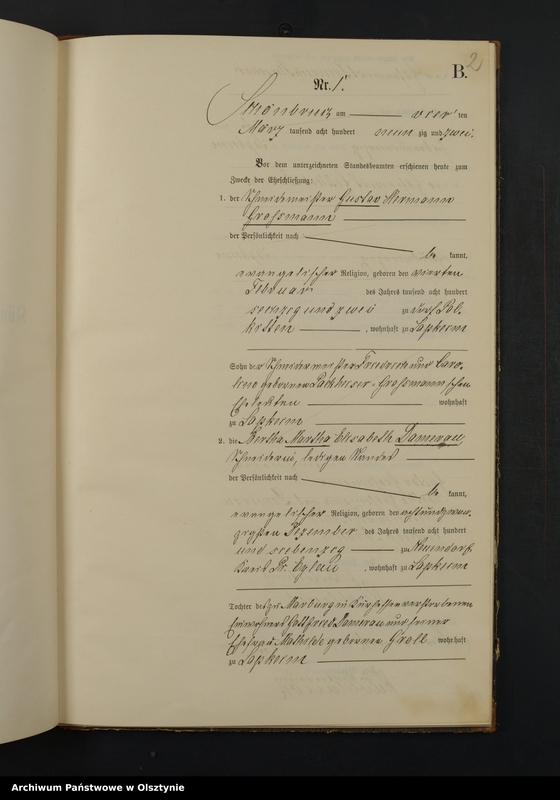 2
B.
Nr. 1.
Schönbruch am vier ten
März tausend acht hundert neun zig und zwei.
Vor dem unterzeichneten Standesbeamten erschienen heute zum
Zwecke der Eheschließung:
1. der Schneidemeister Gustav Hermann
Grossmann
der Persönlichkeit nach
be kannt,
evangelischer Religion, geboren den vierten
Februar des Jahres tausend acht hundert
sechzig und zwei zu Dorf
, wohnhaft zu Lapkeim
Sohn der Schneidermeister Friedrich und Caro-
line geborenen Grossmannschen
Eheleuten wohnhaft
zu Lapkeim
2. die Bertha Martha Elisabeth Damerau,
Schneiderin, ledigen Standes
der Persönlichkeit nach
be kannt,
evangelischer Religion, geboren den achtundzwan-
zigsten Dezember des Jahres tausend acht hundert
und siebenzig zu Neuendorf,
Kreis Pr. Eylau , wohnhaft zu Lapkeim
Tochter des zu Marburg in Kurhessen verstorbenen
Einwohners Gottfried Damerau und seiner
Ehefrau Mathilde geborenen Groll wohnhaft
zu Lapkeim
Archiwum Państwowe w Olsztynie